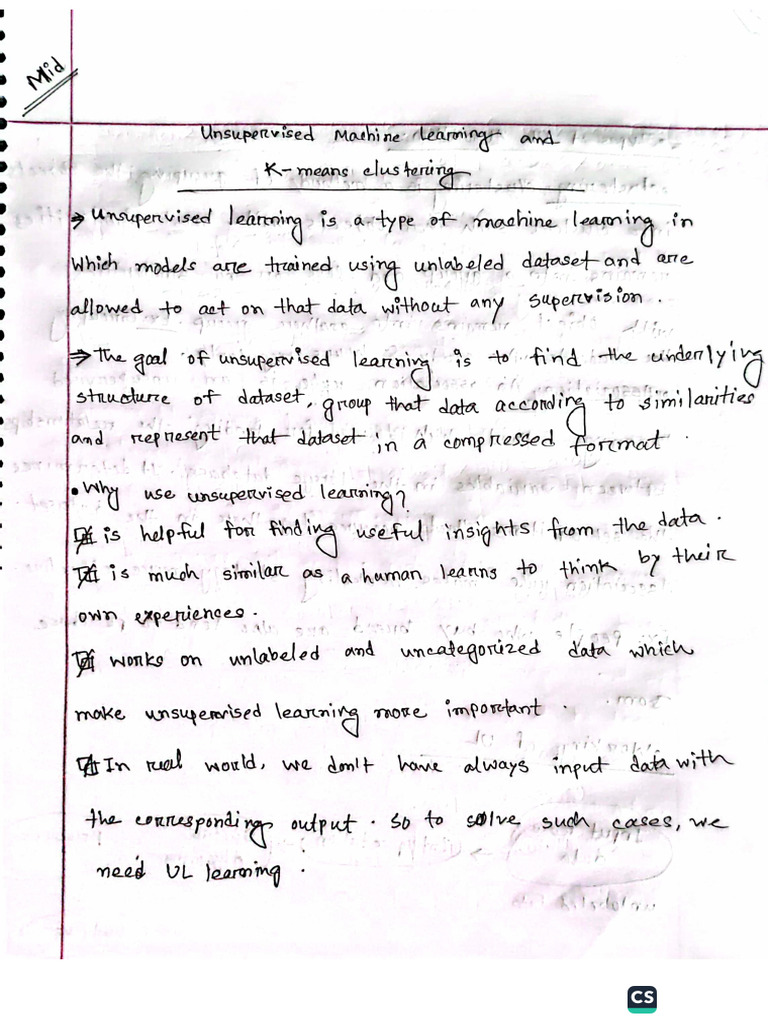 Mid
Unsupervised Machine learning and
K-means clustering
⇒ Unsupervised learning is a type of machine learning in
which models are trained using unlabeled dataset and are
allowed to act on that data without any supervision.
⇒ The goal of unsupervised learning is to find the underlying
structure of dataset, group that data according to similarities
and represent that dataset in a compressed format.
• Why use unsupervised learning?
is helpful for finding useful insights from the data.
is much similar as a human learns to think by their
own experiences.
works on unlabeled and uncategorized data which
make unsupervised learning more important.
In real world, we don't have always input data with
the corresponding output. so to solve such cases, we
need UL learning.
CS